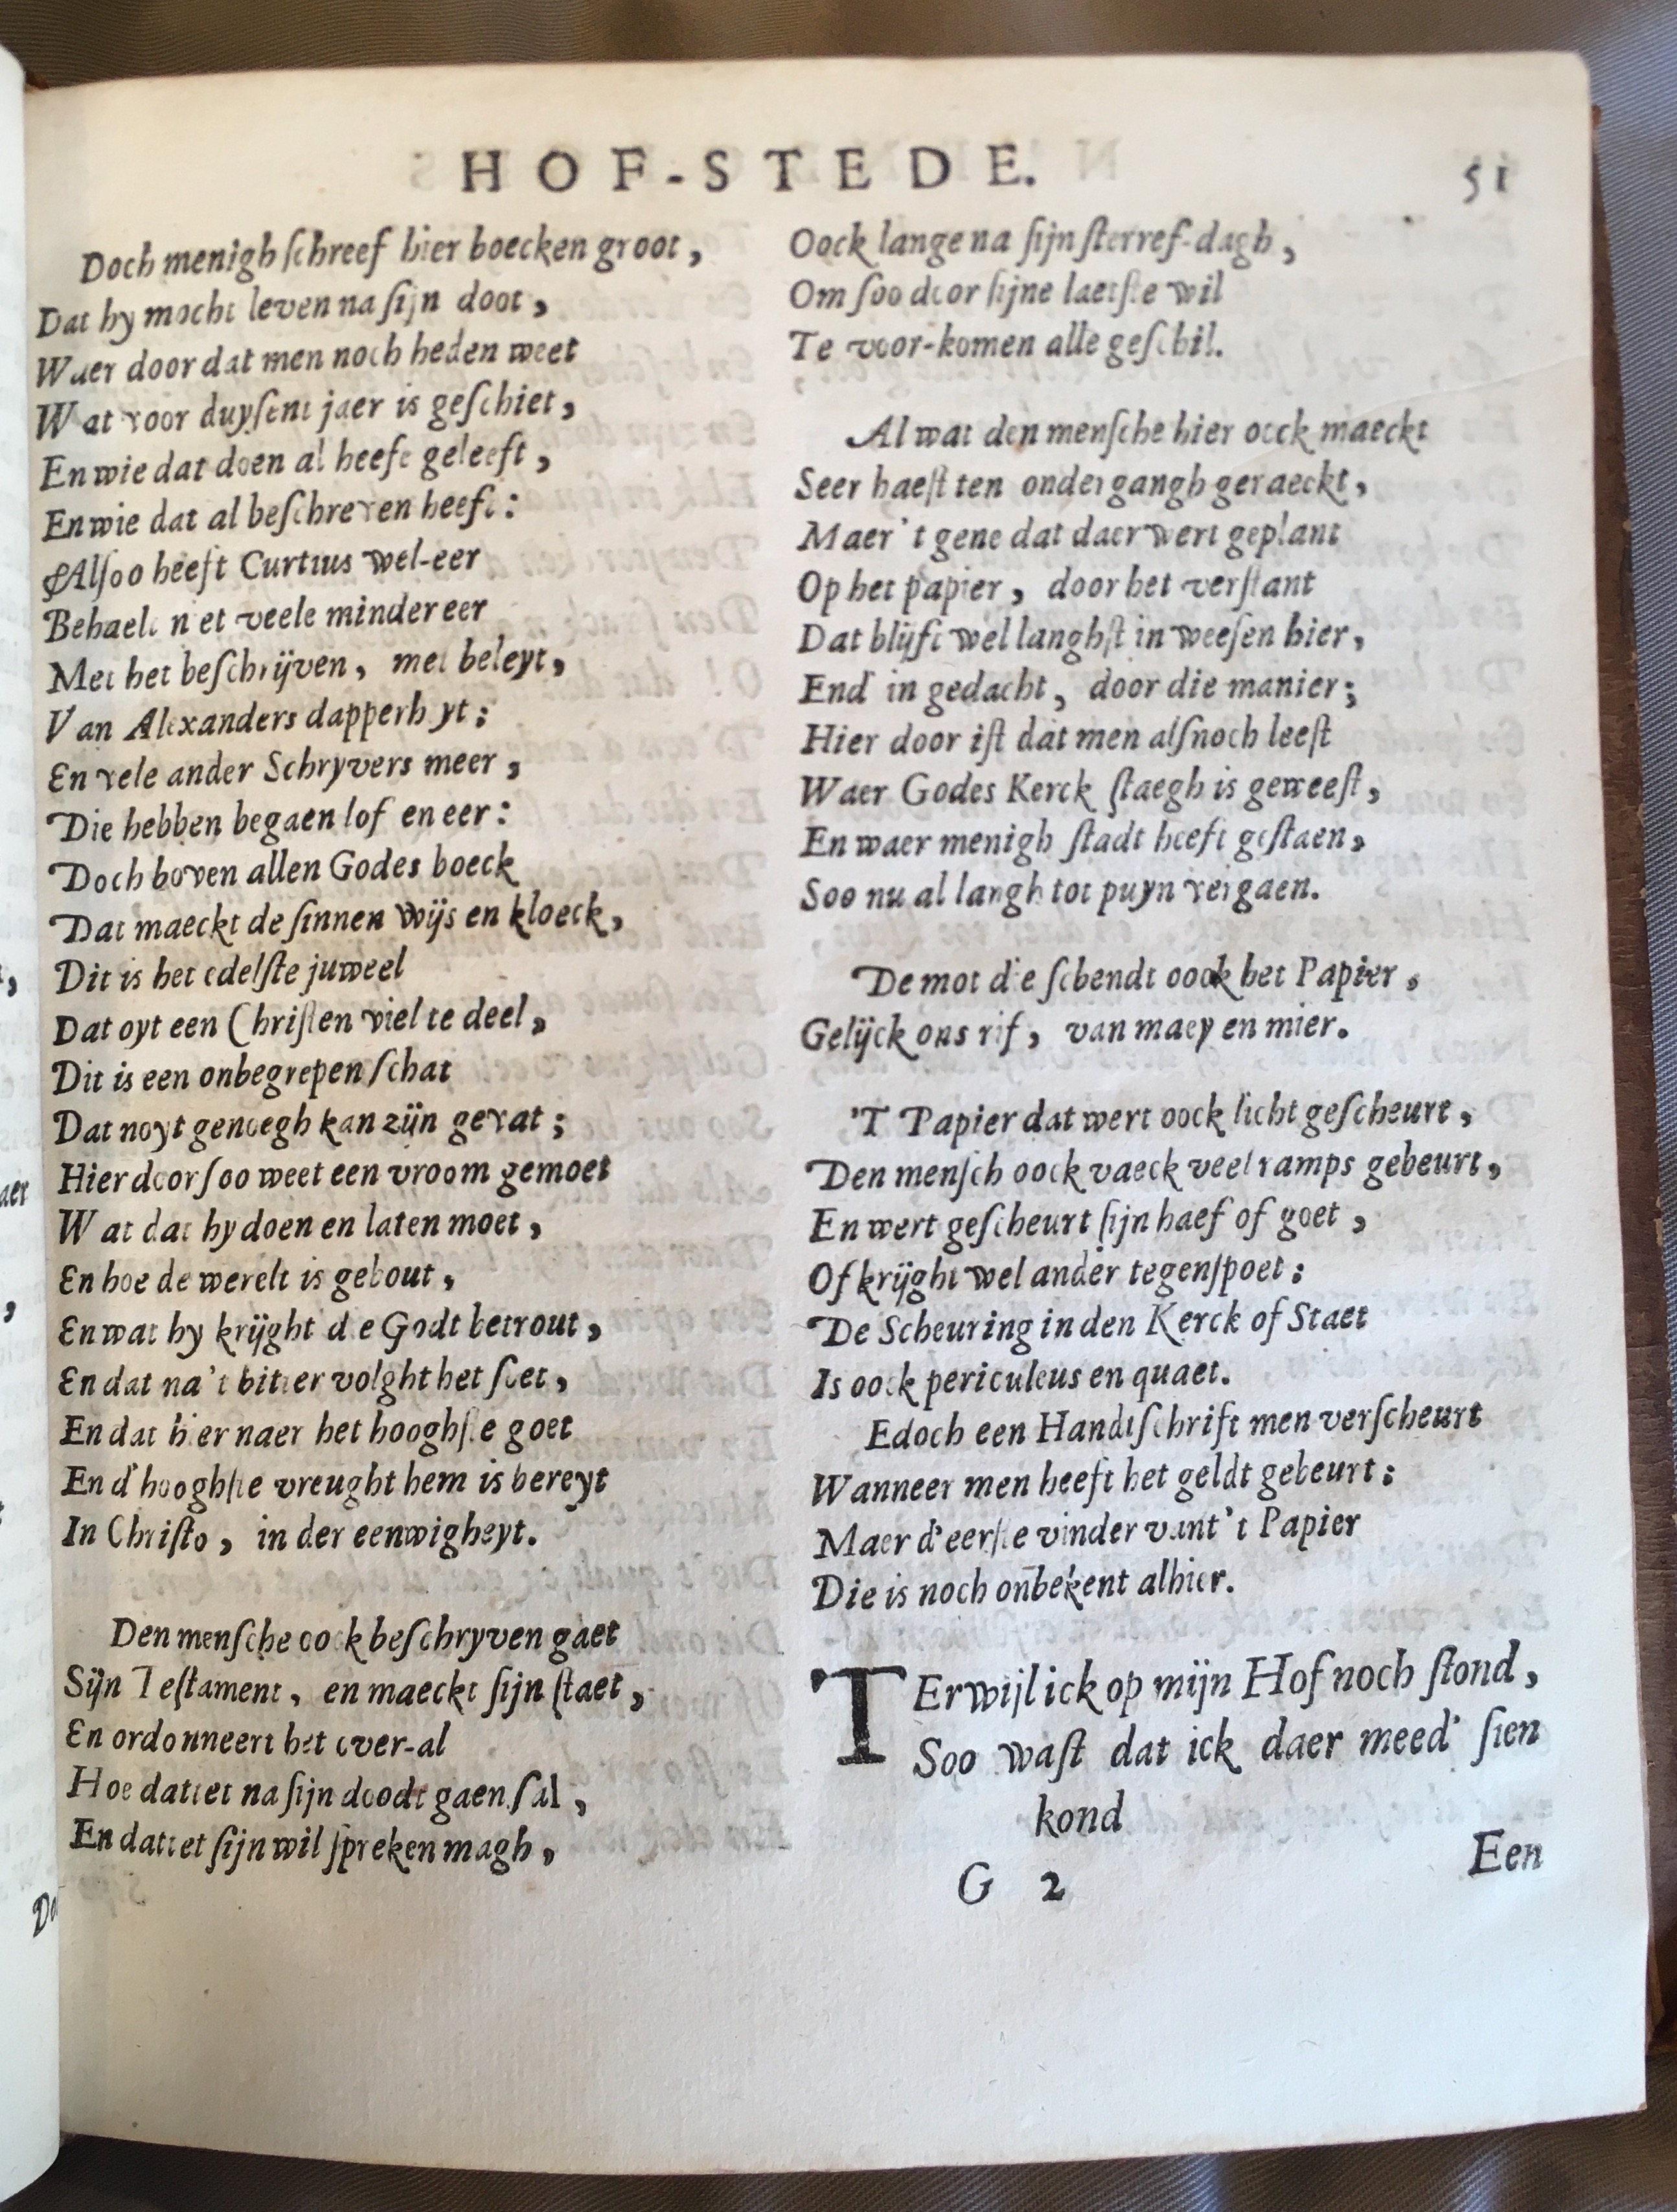 HOF-STEDE. 51
Doch menigh ſchreef hier boecken groot,
Dat hy mocht leven na ſijn doot,
Waer door dat men noch heden weet
Wat voor duyſent jaer is geſchiet,
En wie dat doen al heeft geleeft,
En wie dat al beſchreven heeft:
Alſoo heeft Curtius wel-eer
Behaelt niet veele minder eer
Met het beſchrijven, met beleyt,
Van Alexanders dapperheyt;
En vele ander Schryvers meer,
Die hebben begaen lof en eer:
Doch boven allen Godes boeck
Dat maeckt de ſinnen wijs en kloeck,
Dit is het edelſte juweel
Dat oyt een Chriſten viel te deel,
Dit is een onbegrepen ſchat
Dat noyt genoegh kan zijn gevat;
Hier door ſoo weet een vroom gemoet
Wat dat hy doen en laten moet,
En hoe de werelt is gebout,
En wat hy krijght die Godt betrout,
En dat na't bitter volght het ſoet,
En dat hier naer het hooghſte goet
En d'hooghſte vreught hem is bereyt
In Chriſto, in der eenwigheyt.
Den menſche oock beſchryven gaet
Sijn Teſtament, en maeckt ſijn ſtaet,
En ordonneert het over-al
Hoe dattet na ſijn doodt gaen ſal,
En dattet ſijn wil ſpreken magh,
Oock lange na ſijn ſterref-dagh,
Om ſoo door ſijne laetſte wil
Te voor-komen alle geſchil.
Al wat den menſche hier oock maeckt
Seer haeſt ten ondergangh geraeckt,
Maer 't gene dat daer wert geplant
Op het papier, door het verſtant
Dat blijft wel langhſt in weeſen hier,
End' in gedacht, door die manier;
Hier door iſt dat men alſnoch leeſt
Waer Godes Kerck ſtaegh is geweeſt,
En waer menigh ſtadt heeft geſtaen,
Soo nu al langh tot puyn vergaen.
De mot die ſchendt oock het Papier,
Gelijck ons rif, van maey en mier.
'T Papier dat wert oock licht geſcheurt,
Den menſch oock vaeck veel ramps gebeurt,
En wert geſcheurt ſijn haef of goet,
Of krijght wel ander tegenſpoet:
De Scheuring in den Kerck of Staet
Is oock periculeus en quaet.
Edoch een Handtſchrift men verſcheurt
Wanneer men heeft het geldt gebeurt:
Maer d'eerſte vinder vant't Papier
Die is noch onbekent alhier.
TErwijl ick op mijn Hof noch ſtond,
Soo waſt dat ick daer meed' ſien
kond
G 2 Een